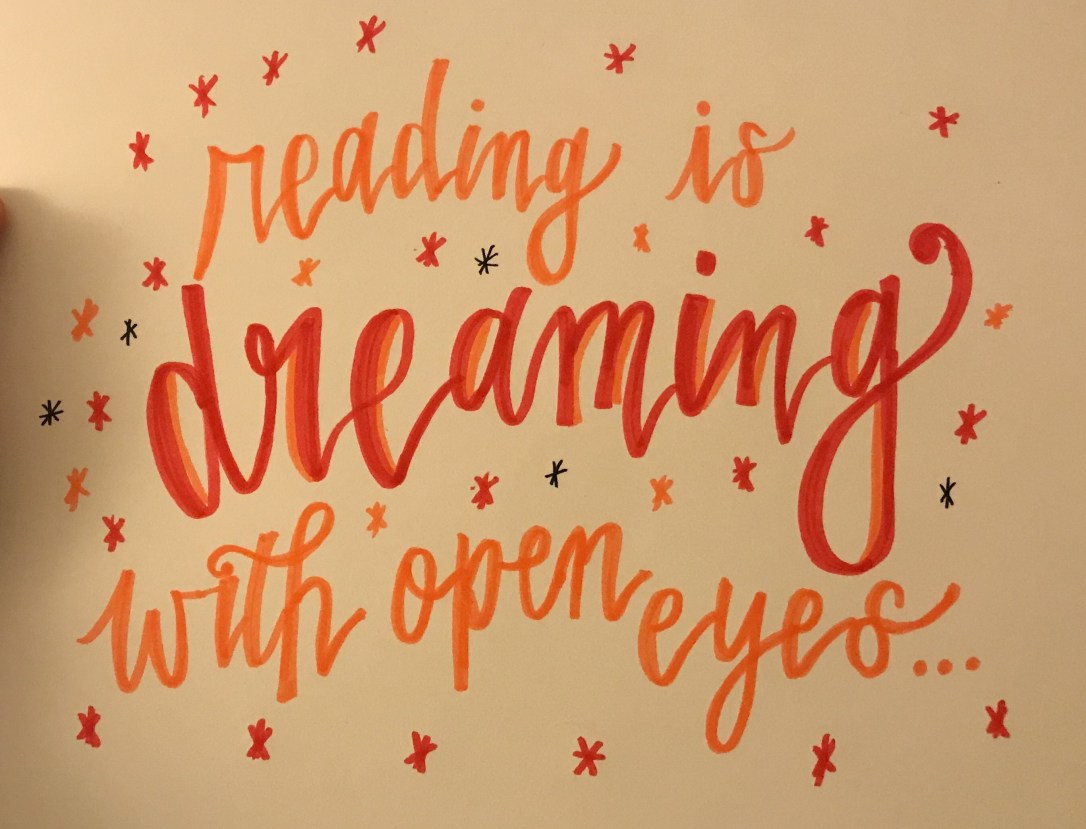 reading is
dreaming
with open eyes...